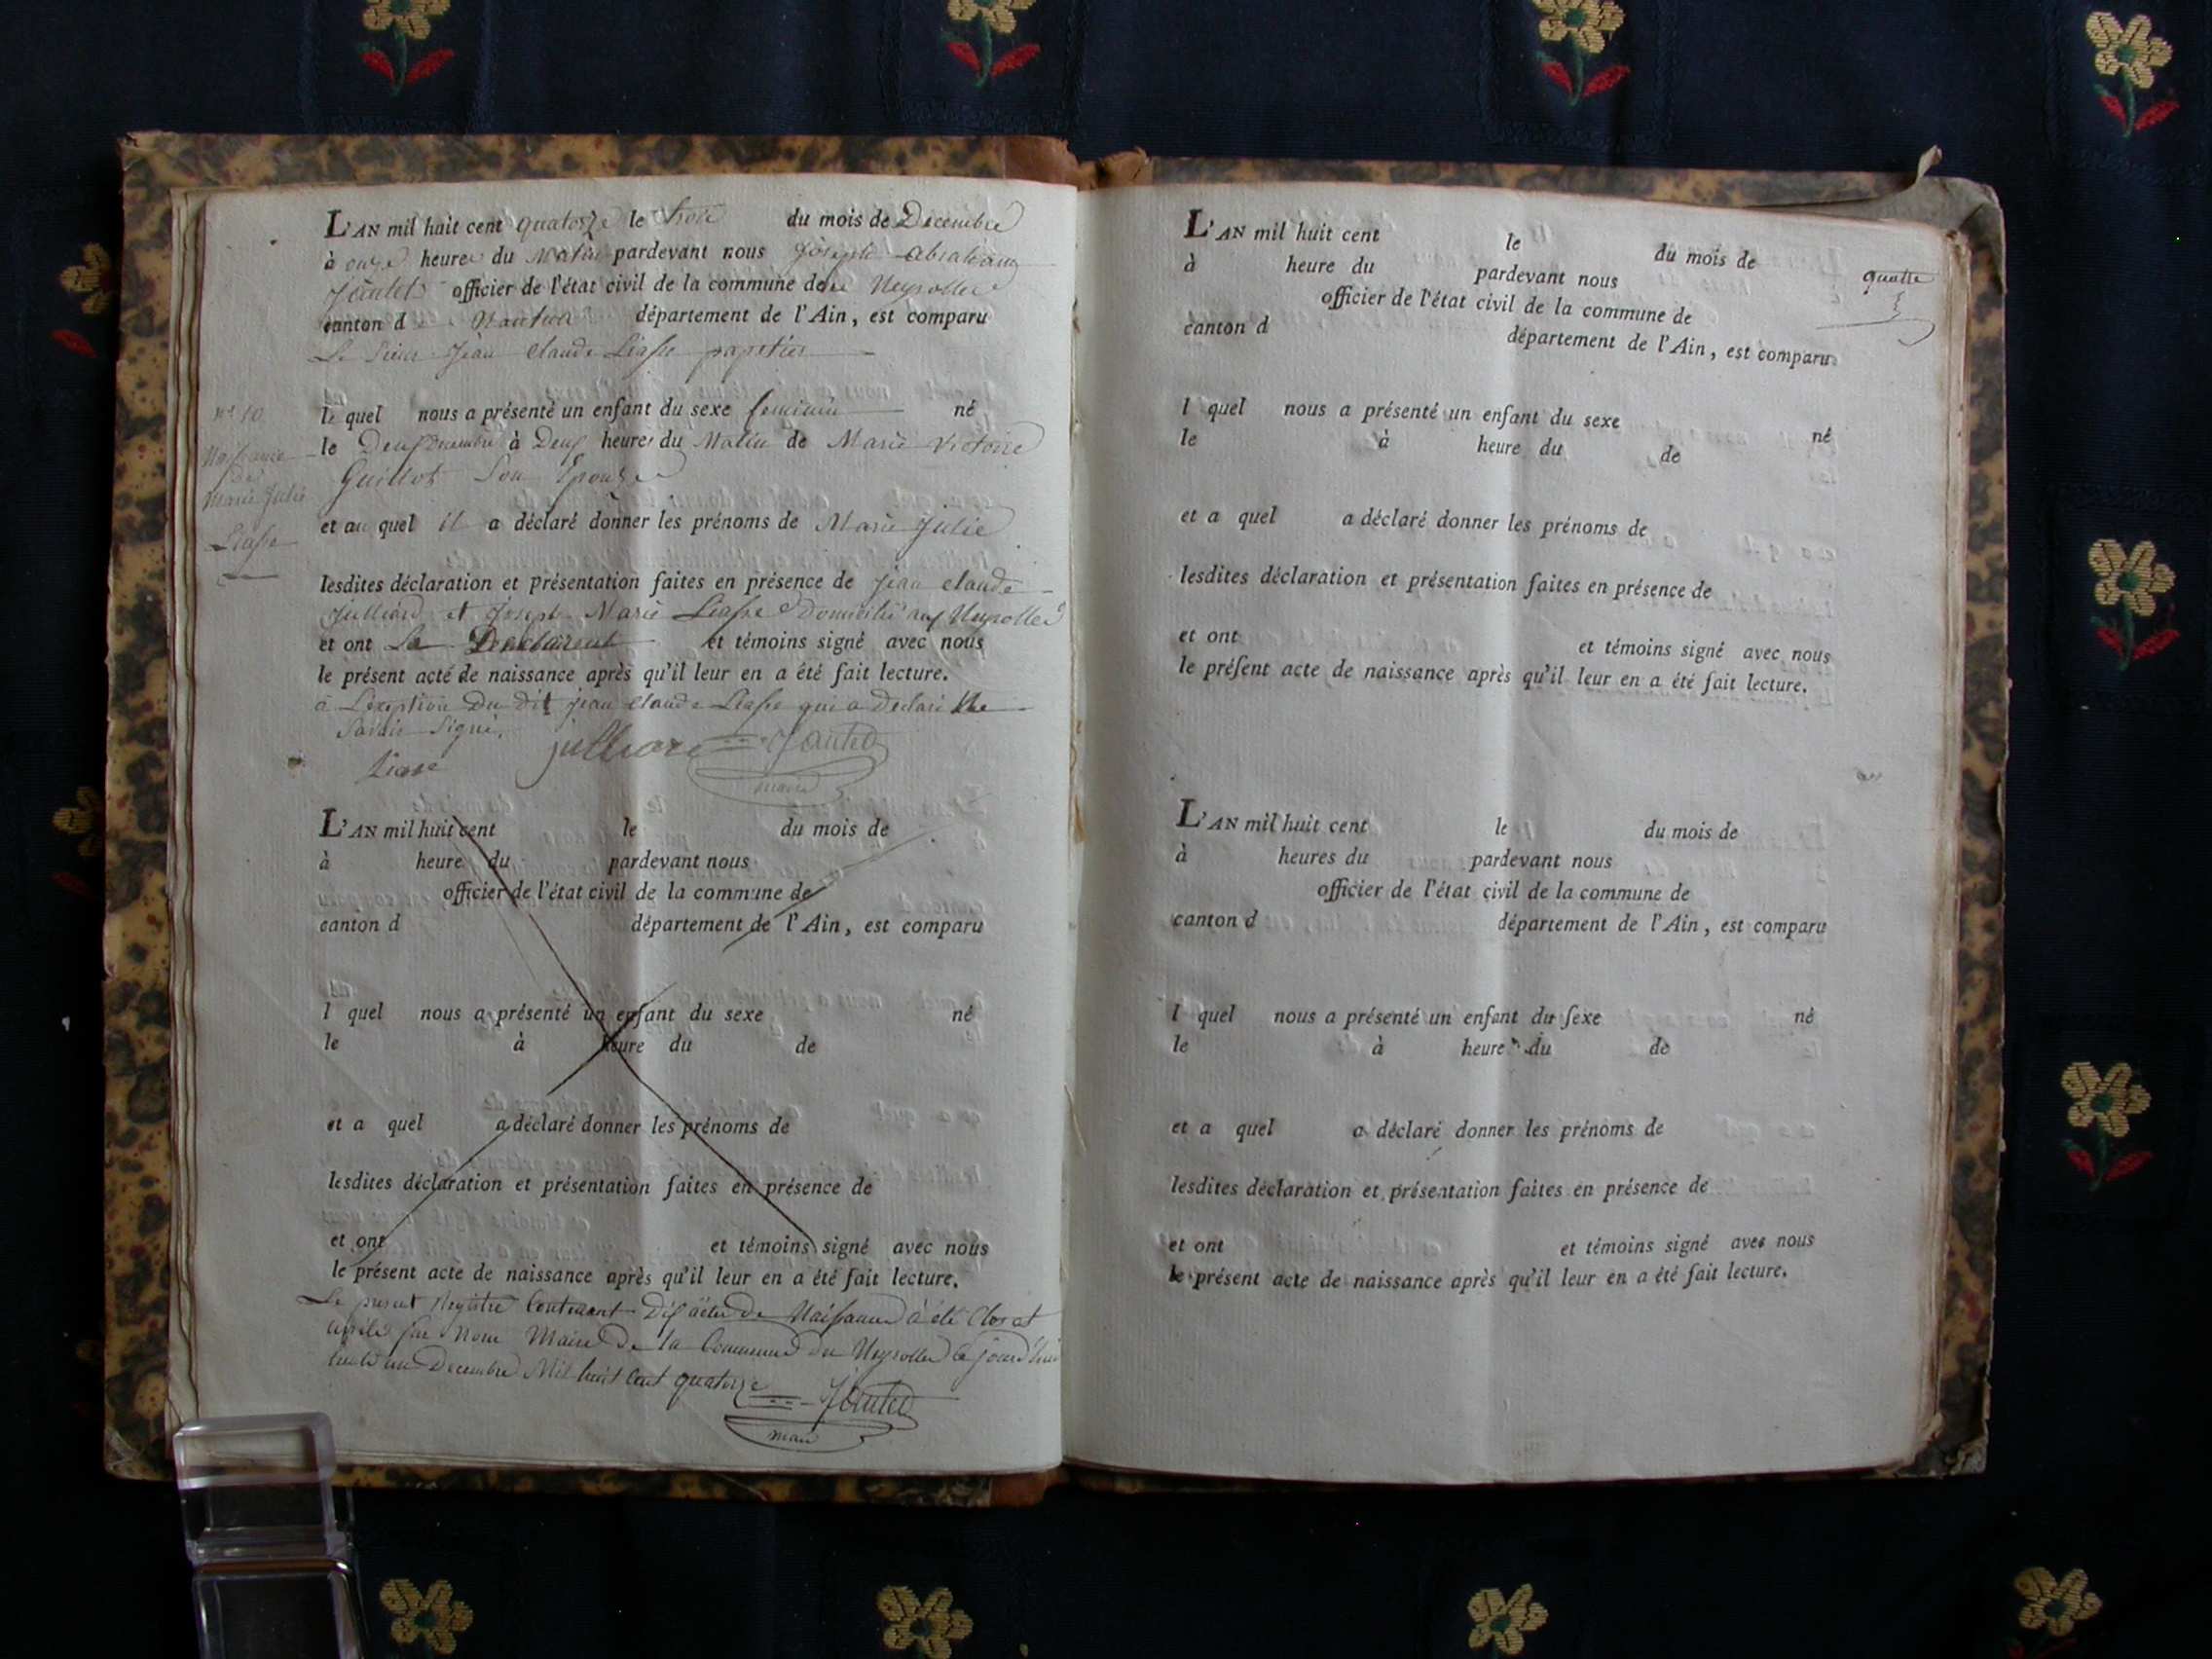 L'AN mil huit cent quatorze le trois du mois de Decembre
à onze heures du matin pardevant nous Joseph Abraham
Jantet officier de l'état civil de la commune des Neyrolles
canton de Nantua département de l'Ain, est comparu
Le Sieur Jean Claude Liasse papetier
le quel nous a présenté un enfant du sexe feminin né
le Deux decembre à Deux heures du Matin de Marie Victoire
Guillot Son Epouse
et au quel il a déclaré donner les prénoms de Marie Julie
lesdites déclaration et présentation faites en présence de Jean Claude
Julliard et Joseph Marie Liasse Domiciliés aux Neyrolles
et ont Le Declarant et témoins signé avec nous
le présent acte de naissance après qu'il leur en a été fait lecture.
à L'exeption Du dit jean Claude Liasse qui a Declaré Ne
Savoir Signé.
Liasse julliard Jantet
maire
n° 10
Naissance
de
Marie Julie
Liasse
L'AN mil huit cent le du mois de
à heure du pardevant nous
officier de l'état civil de la commune de
canton d département de l'Ain, est comparu
l quel nous a présenté un enfant du sexe né
le à heure du de
et a quel a déclaré donner les prénoms de
lesdites déclaration et présentation faites en présence de
et ont et témoins signé avec nous
le présent acte de naissance après qu'il leur en a été fait lecture.
Le present Registre Contenant Dix actes de Naissance à été Clos et
arrêté par Nous Maire De la Commune des Neyrolles Ce jourd'hui
trente un Decembre Mil huit Cent quatorze Jantet
maire
L'AN mil huit cent le du mois de
à heure du pardevant nous
officier de l'état civil de la commune de
canton d département de l'Ain, est comparu
quatre
l quel nous a présenté un enfant du sexe né
le à heure du de
et a quel a déclaré donner les prénoms de
lesdites déclaration et présentation faites en présence de
et ont et témoins signé avec nous
le préſent acte de naissance après qu'il leur en a été fait lecture.
L'AN mil huit cent le du mois de
à heures du pardevant nous
officier de l'état civil de la commune de
canton d département de l'Ain, est comparu
l quel nous a présenté un enfant du ſexe né
le à heure du de
et a quel a déclaré donner les prénoms de
lesdites déclaration et présentation faites en présence de
et ont et témoins signé avec nous
le présent acte de naissance après qu'il leur en a été fait lecture.